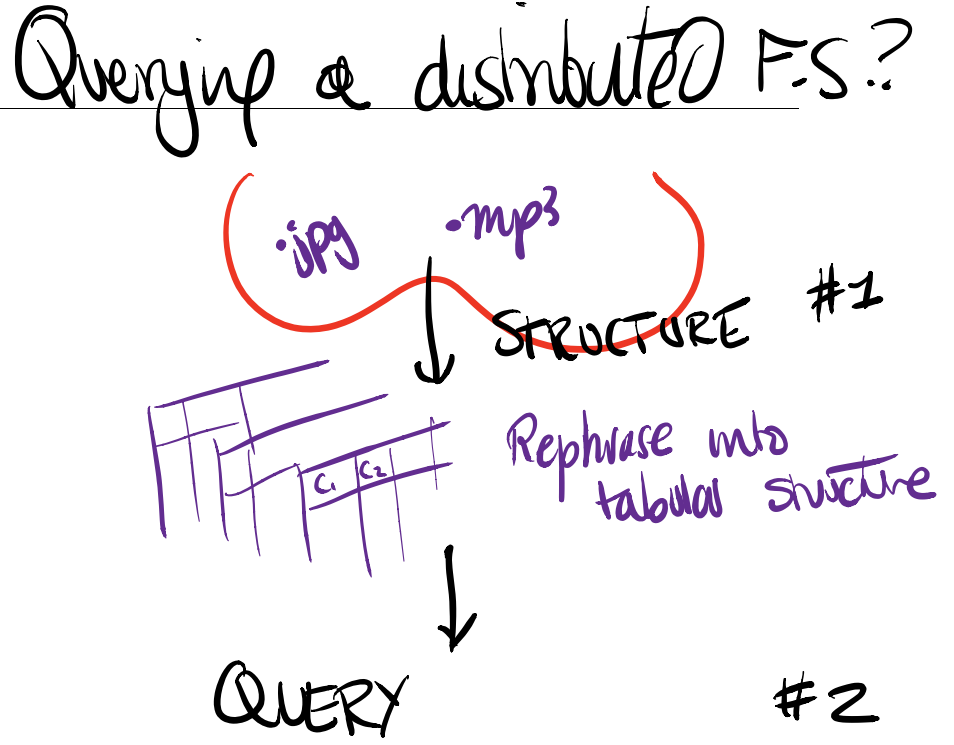 Querying a distributed F.S?
.jpg .mp3
STRUCTURE #1
Rephrase into
tabular structure
C1 C2
QUERY #2